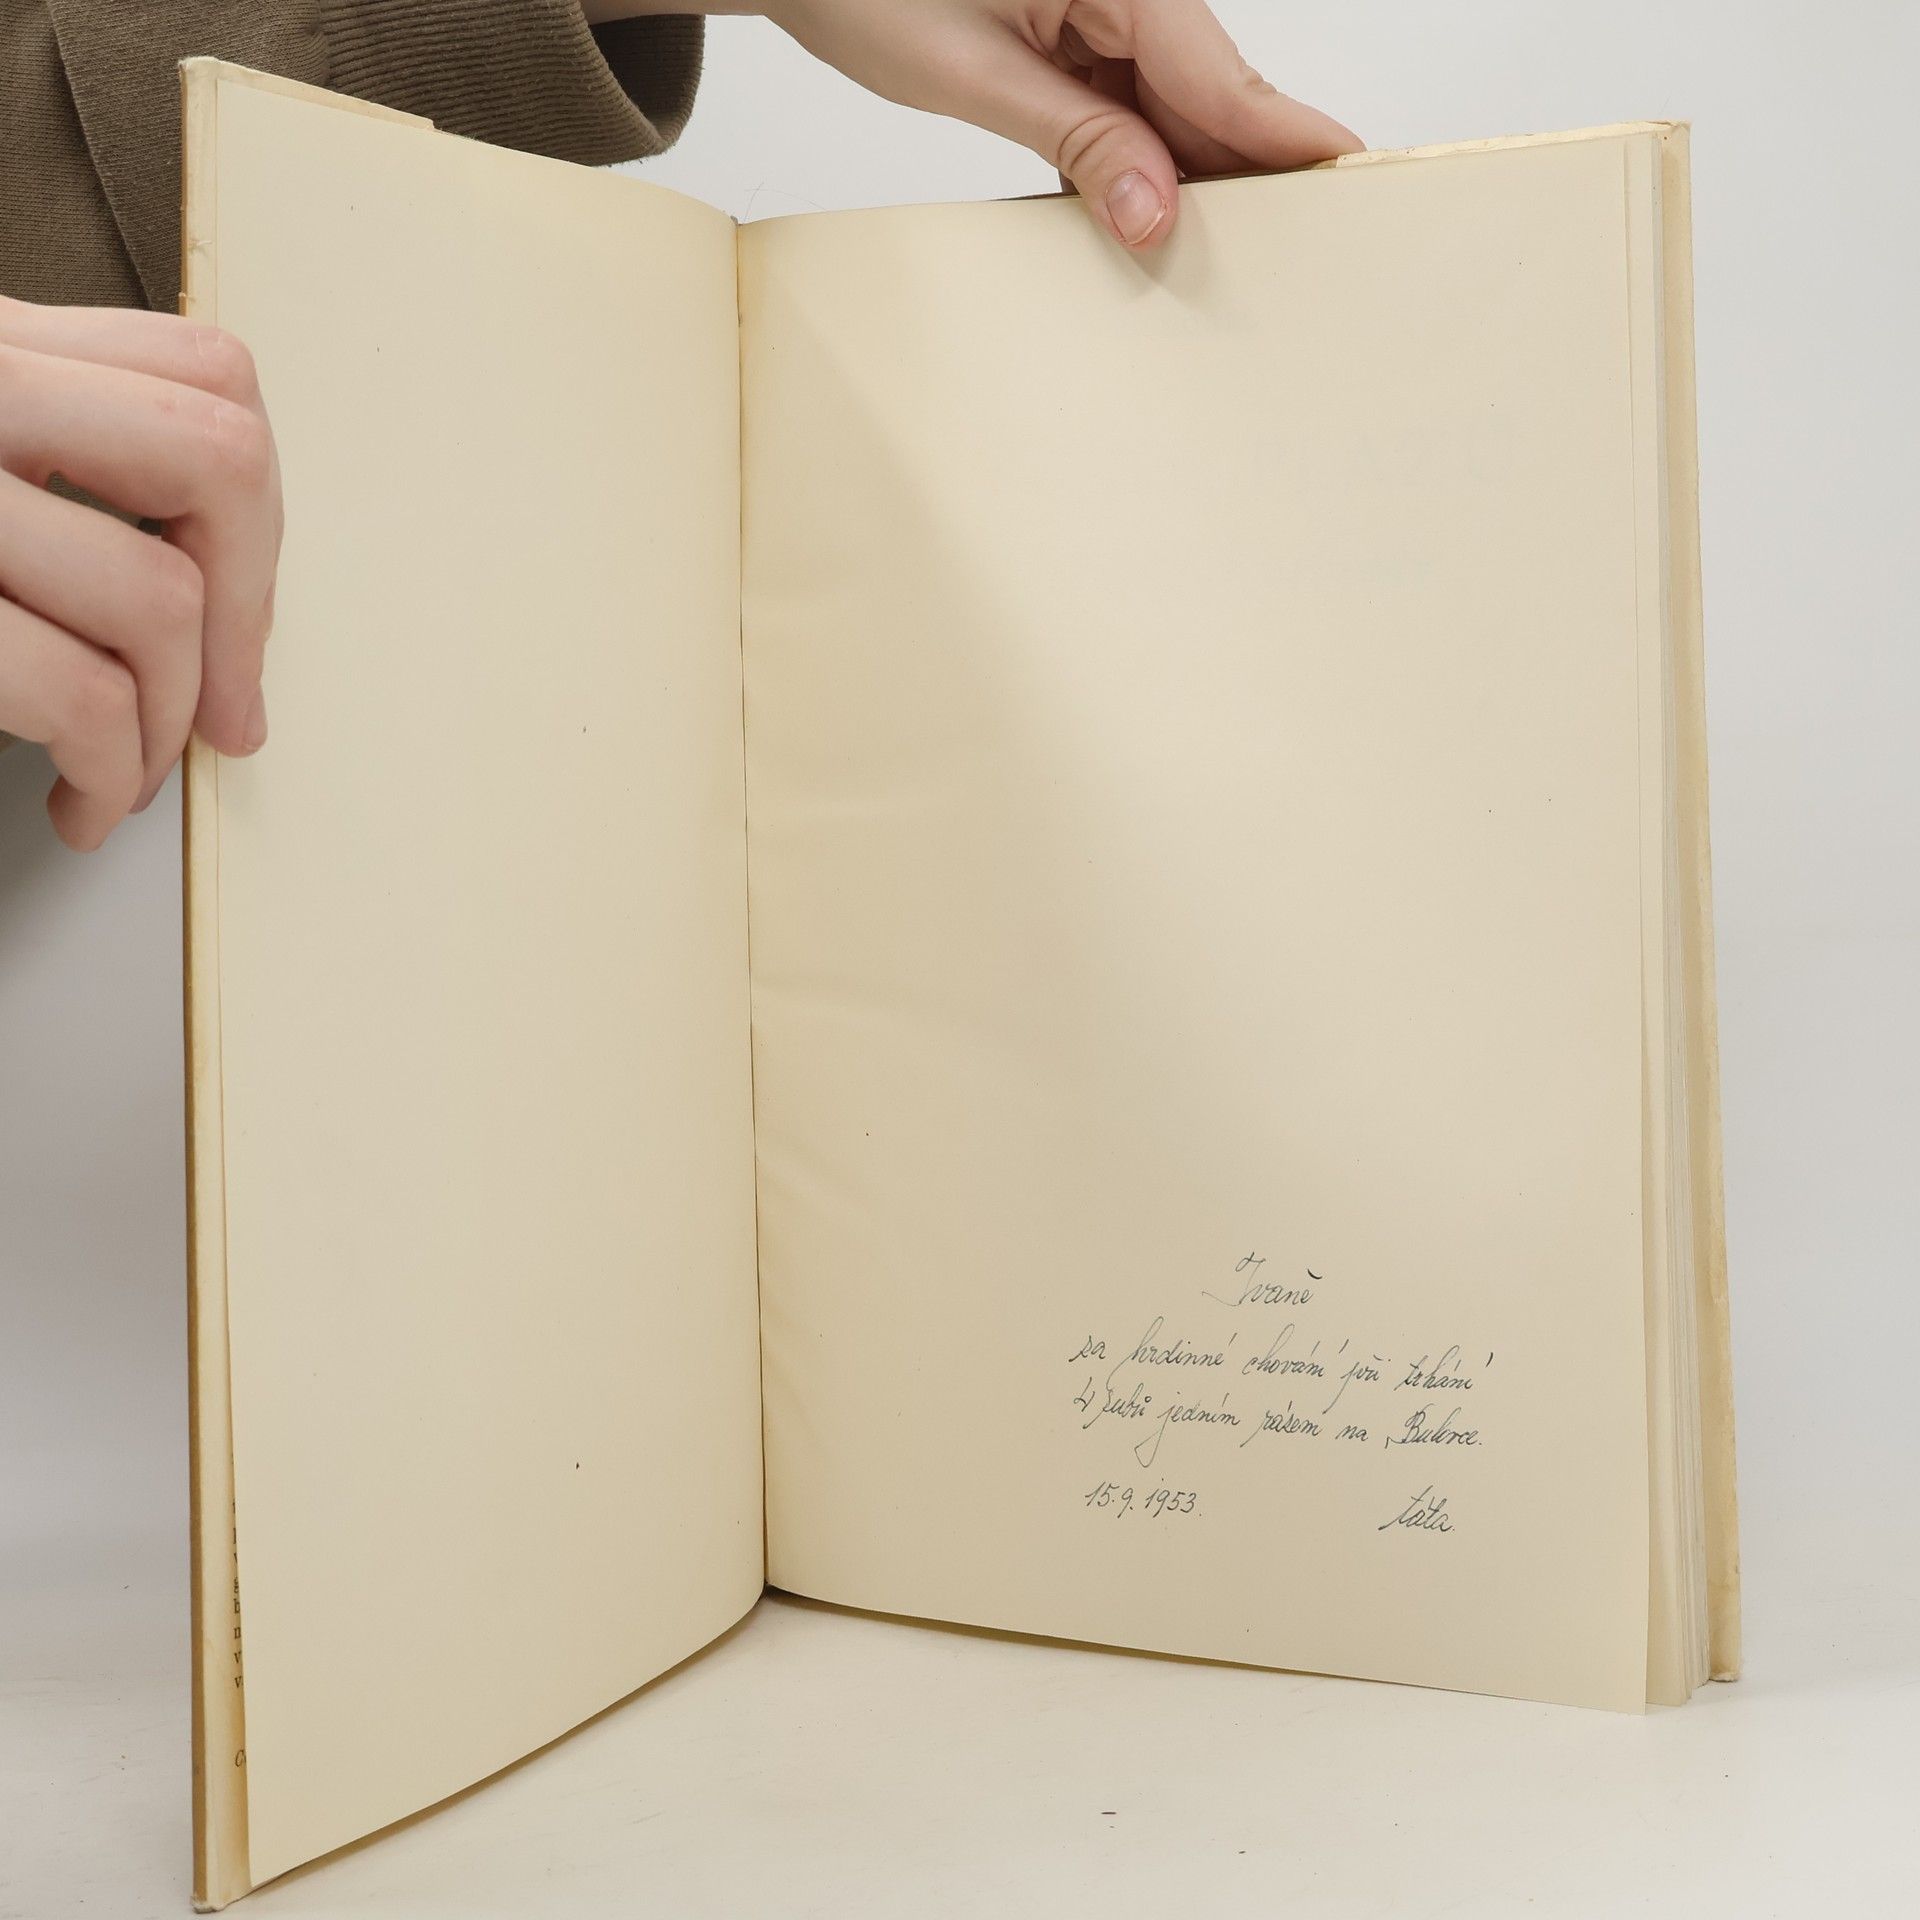 Ivaně
za hrdinné chování při trhání
4 zubů jedním rázem na Bulovce.
15.9.1953.
táta.